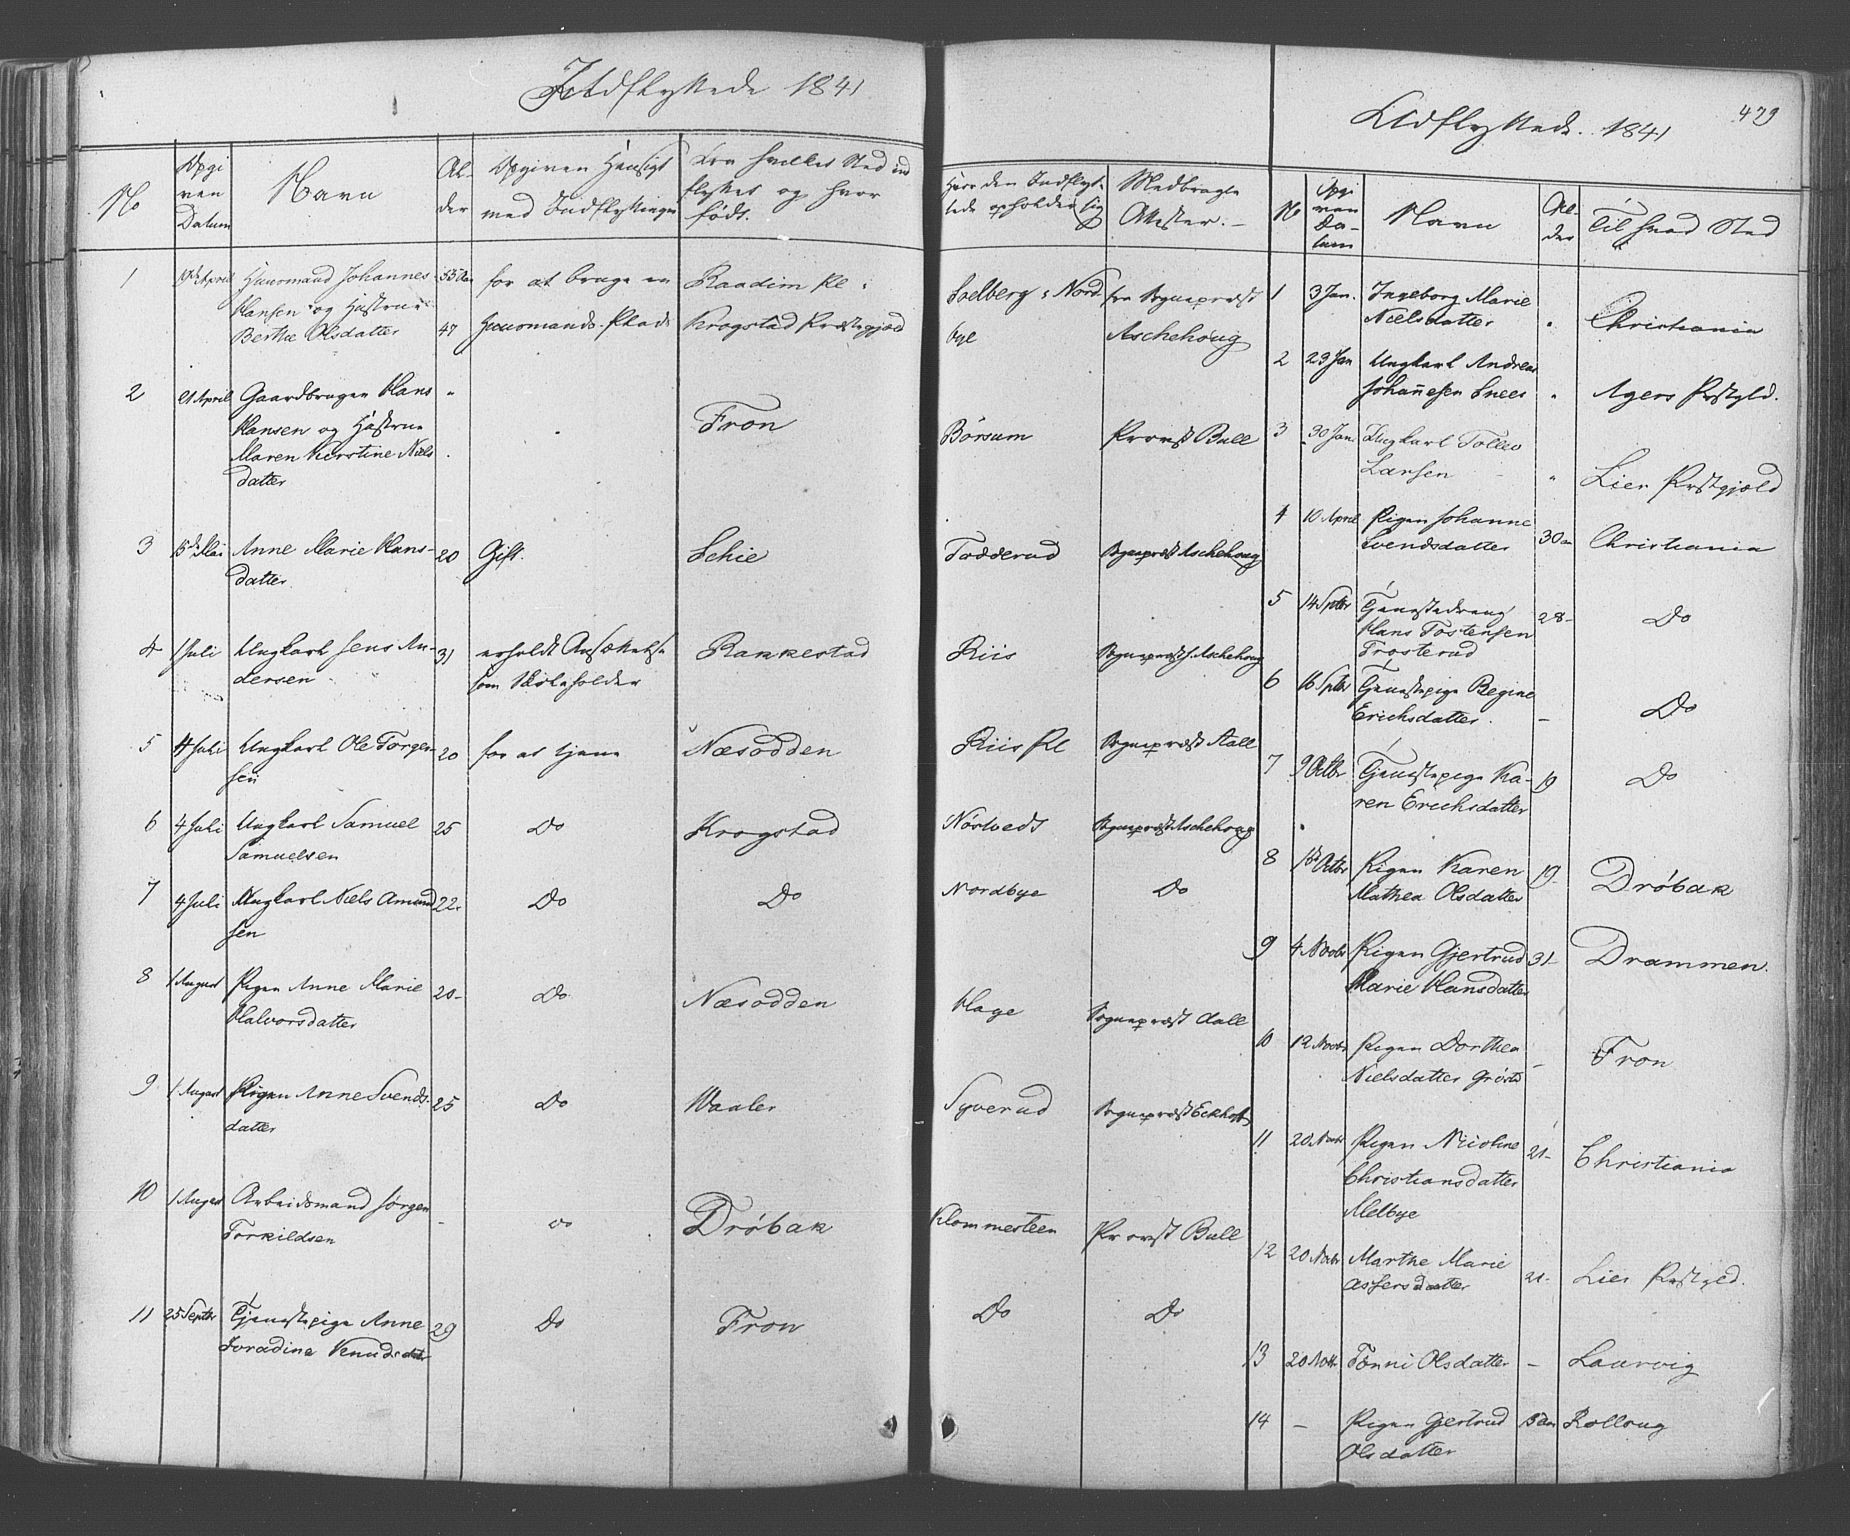 Indflyttede 1841
No
Opgiven Datum
Navn
Alder
Opgiven Hensigt med Indflytningen
Fra hvilket Sted indflyttet og hvor født.
Hvor den Indflyttede opholder sig
Medbragte Attester.
1
Huusmand Johannes Hansen og Hustrue Berthe Olsdatter
47
for at bruge en Huusmands-Plads
Krogstad Præstegjæld
Soelberg i Nordbye
fra Sognepræst Aschehoug
2
21 April
Gaardbruger Hans Hansen og Hustrue Maren Kirstine Nielsdatter
Fron
Börsum
Provst Bull
3
15de Mai
Anne Marie Hansdatter
20
Gift.
Schie
Tødderud
Sognepræst Aschehoug
4
1 Juli
Ungkarl Jens Andersen
31
erholdt Ansættelse som Skoleholder
Rakkestad
Riis
Sognepræst Aschehoug
5
4 Juli
Ungkarl Ole Torgensen
20
for at tjene
Næsodden
Riis
Sognepræst Aall
6
4 Juli
Ungkarl Samuel Samuelsen
25
Do
Krogstad
Nörtvedt
Sognepræst Aschehoug
7
4 Juli
Ungkarl Niels Amundsen
22
Do
Do
Nordbye
Do
8
1 August
Pigen Anne Marie Halvorsdatter
20
Do
Næsodden
Hage
Sognepræst Aall
9
1 August
Pigen Anne Svendsdatter
25
Do
Waaler
Syverud
Sognepræst Eckhoff
10
1 August
Arbeidsmand Jörgen Torkildsen
Do
Dröbak
Klommesteen
Provst Bull
11
25 Septbr
Tjenestepige Anne Knudsdatter
29
Do
Fron
Do
Do
Udflyttede. 1841
479
No
Opgiven Datum
Navn
Alder
Til hvad Sted
1
3 Jan.
Ingeborg Marie Nielsdatter
Christiania
2
29 Jan
Ungkarl Andreas Johannesen Snees
Agers Præstgjld.
3
30 Jan.
Ungkarl Tollev Larsen
Lier Prstgjæld
4
10 April
Pigen Johanne Svendsdatter
30
Christiania
5
14 Septbr
Tjenestedreng Hans Tostensen Trosterud
28
Do
6
16 Septbr
Tjenestepige Regine Erichsdatter.
Do
7
9 Octbr
Tjenestepige Karen Erichsdatter
19
Do
8
Pigen Karen Mathea Olsdatter
19
Dröbak
9
4 Novbr
Pigen Gjertrud Marie Hansdatter
31
Drammen.
10
12 Novbr
Pigen Dorthea Nielsdatter
Fron
11
20 Novbr
Pigen Nicoline Christiansdatter Melbye
21
Christiania
12
20 Novbr
Marthe Marie Assersdatter
21
Lier Prstgld.
13
20 Novbr
Tonni Olsdatter
Laurvig
14
Pigen Gjertrud Olsdatter
Rolloug